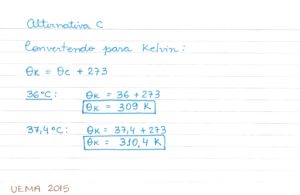 Alternativa C
Convertendo para Kelvin:
θK = θC + 273
36°C: θK = 36 + 273
θK = 309 K
37,4°C: θK = 37,4 + 273
θK = 310,4 K
UEMA, 2015